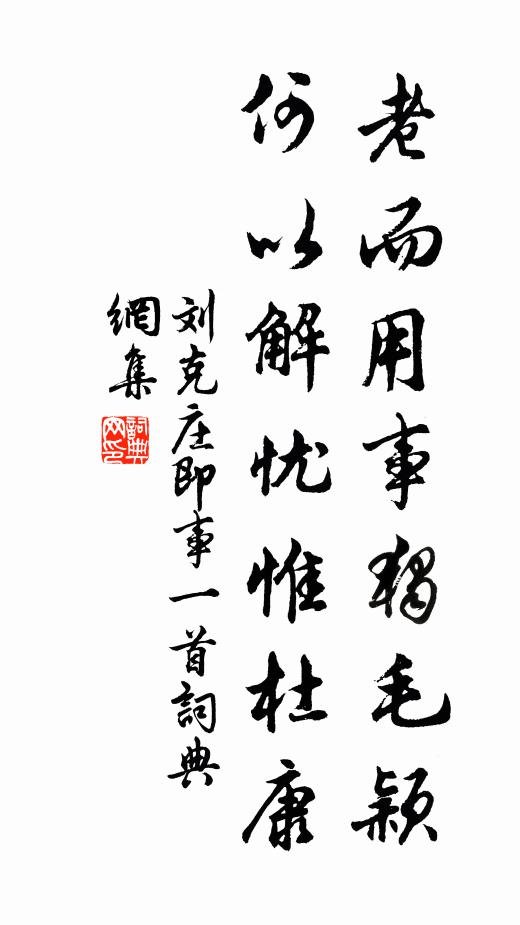 老而用事獨毛颖
何以解忧惟杜康
刘克庄即事一首詞典
網集
詞典
网印